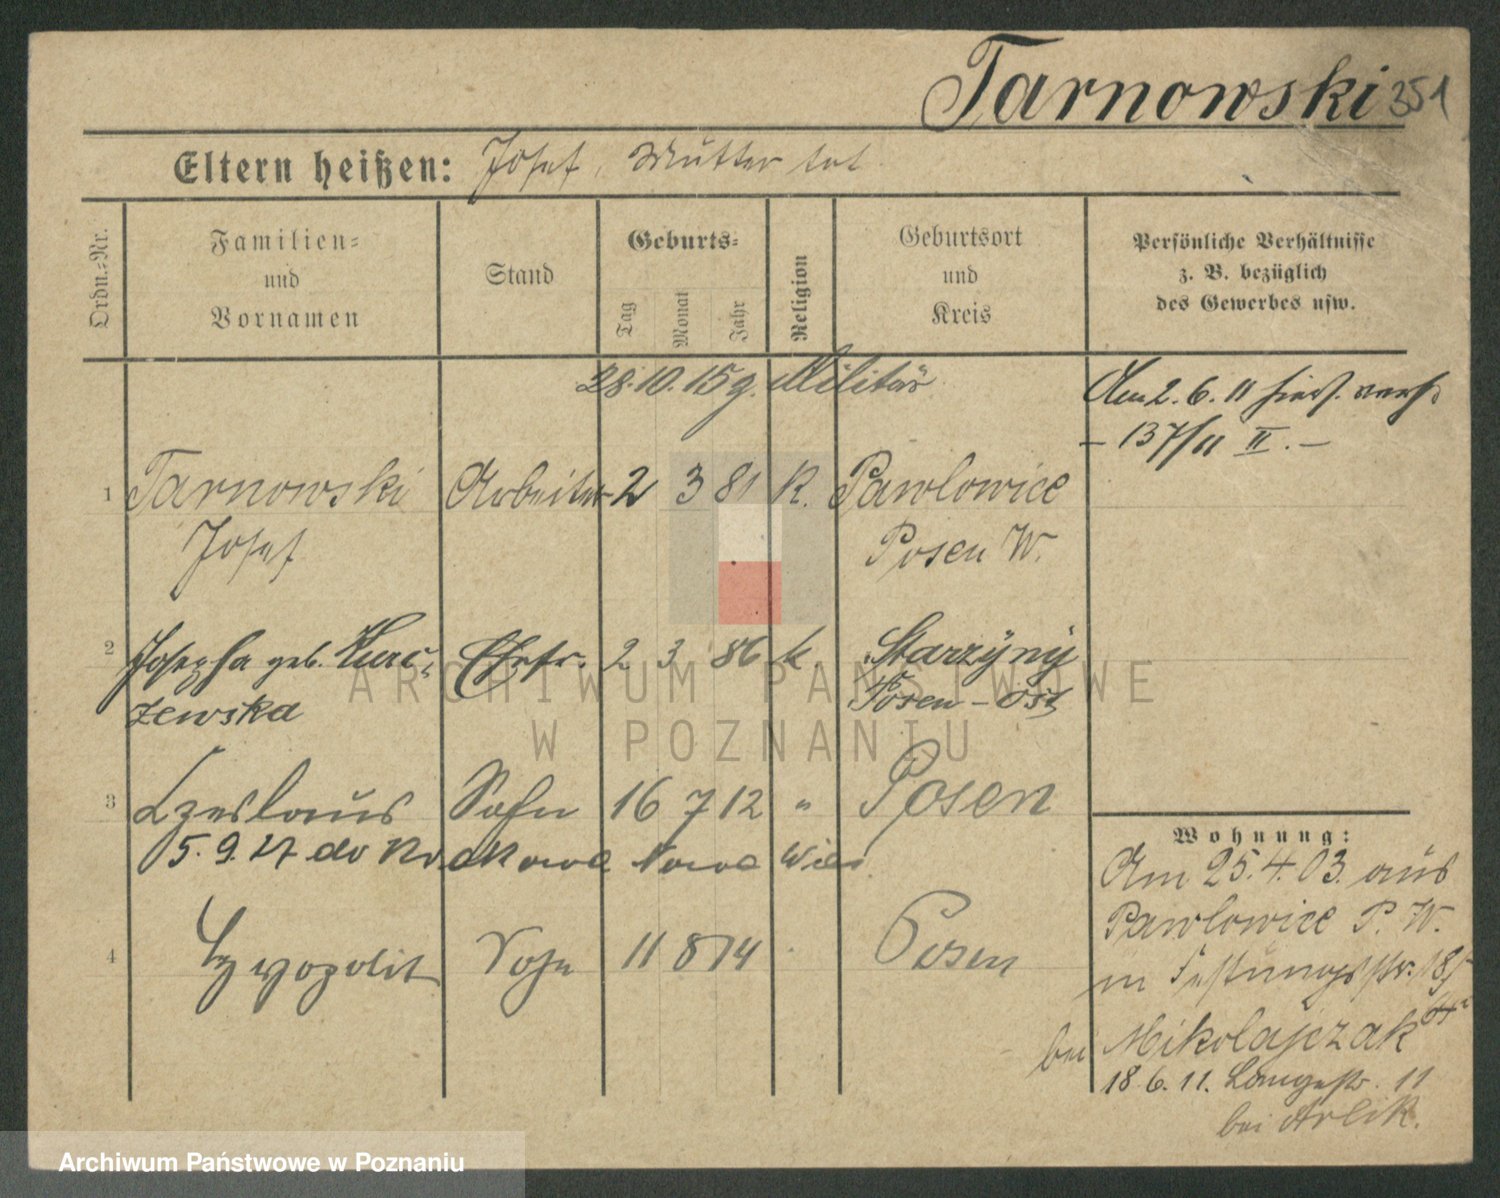 Tarnowski 351
Eltern heißen: Josef, Mutter tot
Ordn.-Nr.
Familien- und Vornamen
Stand
Geburts-
Tag
Monat
Jahr
Religion
Geburtsort und Kreis
Persönliche Verhältnisse
z. B. bezüglich
des Gewerbes usw.
28.10.15 g. Militär
Am 2.6.11
- 137/11 II. -
1 Tarnowski Arbeiter 2 3 81 K. Pawlowice
Josef Posen W.
2 Josepha geb. Kurc- Ehefr. 2 3 86 k. Starzyny
zewska Posen-Ost
3 Czeslaus Sohn 16 7 12 " Posen
5.9.27 do
4 Sohn 11 8 14 Posen
Wohnung:
Am 25.4.03. aus
Pawlowice P. W.
in Festungsstr. 18
bei Mikolajczak
18.6.11. Langestr. 11
bei Arlik.
ARCHIWUM PAŃSTWOWE
W POZNANIU
Archiwum Państwowe w Poznaniu